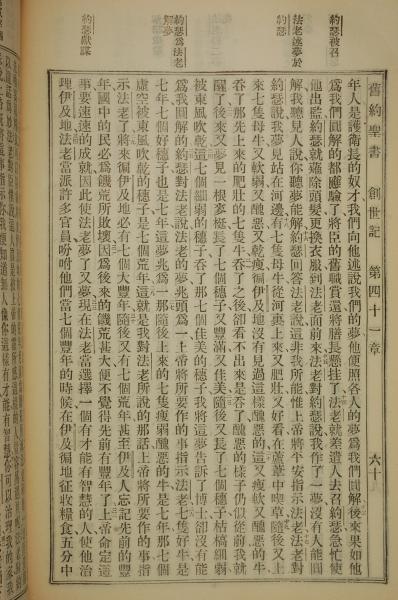 舊約聖書 創世記 第四十一章 六十
約瑟被召
法老述夢於
約瑟
約瑟爲法老
解夢
約瑟獻謀
年人是護衛長的奴才我們向他述說我們的夢他便照各人的夢爲我們圓解後來果如他
爲我們圓解的都應驗了將臣的舊職賞還將膳長懸挂了法老就差遣人去召約瑟急忙使
他出監約瑟就薙除頭髮更換衣服到法老面前來法老對約瑟說我作了一夢沒有人能圓
解我聽見人說你聽夢能解約瑟回答法老說這非我所能惟上帝將平安指示法老法老對
約瑟說我夢見站在河邊有七隻母牛從河裏上來又肥壯又好看在蘆葦中喫草隨後又上
來七隻母牛又軟弱又醜惡又乾瘦徧伊及地沒有見過這樣醜惡的這又瘦軟又醜惡的牛
吞了那先上來的肥壯的七隻牛吞了之後卻看不出來是吞了醜惡的樣子仍似從前我就
醒了後來又夢見一根麥梃長了七個穗子又豐滿又佳美又長了七個穗子枯槁細弱
被東風吹乾這七個細弱的穗子吞了那七個佳美的穗子我將這夢告訴了博士卻沒有能
爲我圓解的約瑟對法老說法老的夢兆頭爲一上帝將所要作的事指示法老七隻好牛是
七年七個好穗子也是七年這夢兆爲一那隨後上來的七隻瘦弱醜惡的牛是七年那七個
虛空被東風吹乾的穗子是七個荒年這就是我對法老所說的那話上帝將所要作的事指
示法老了將來徧伊及地必有七個大豐年隨後又有七個荒年甚至伊及人忘記先前的豐
年國中的民必爲饑荒所敗壞因爲後來的饑荒甚大便不覺得先前有豐年了上帝命定這
事要速速的成就因此使法老夢了又夢現在法老當選擇一個有才能有智慧的人使他治
理伊及地法老當派許多官員吩咐他們當七個豐年的時候在伊及徧地征收糧食五分中